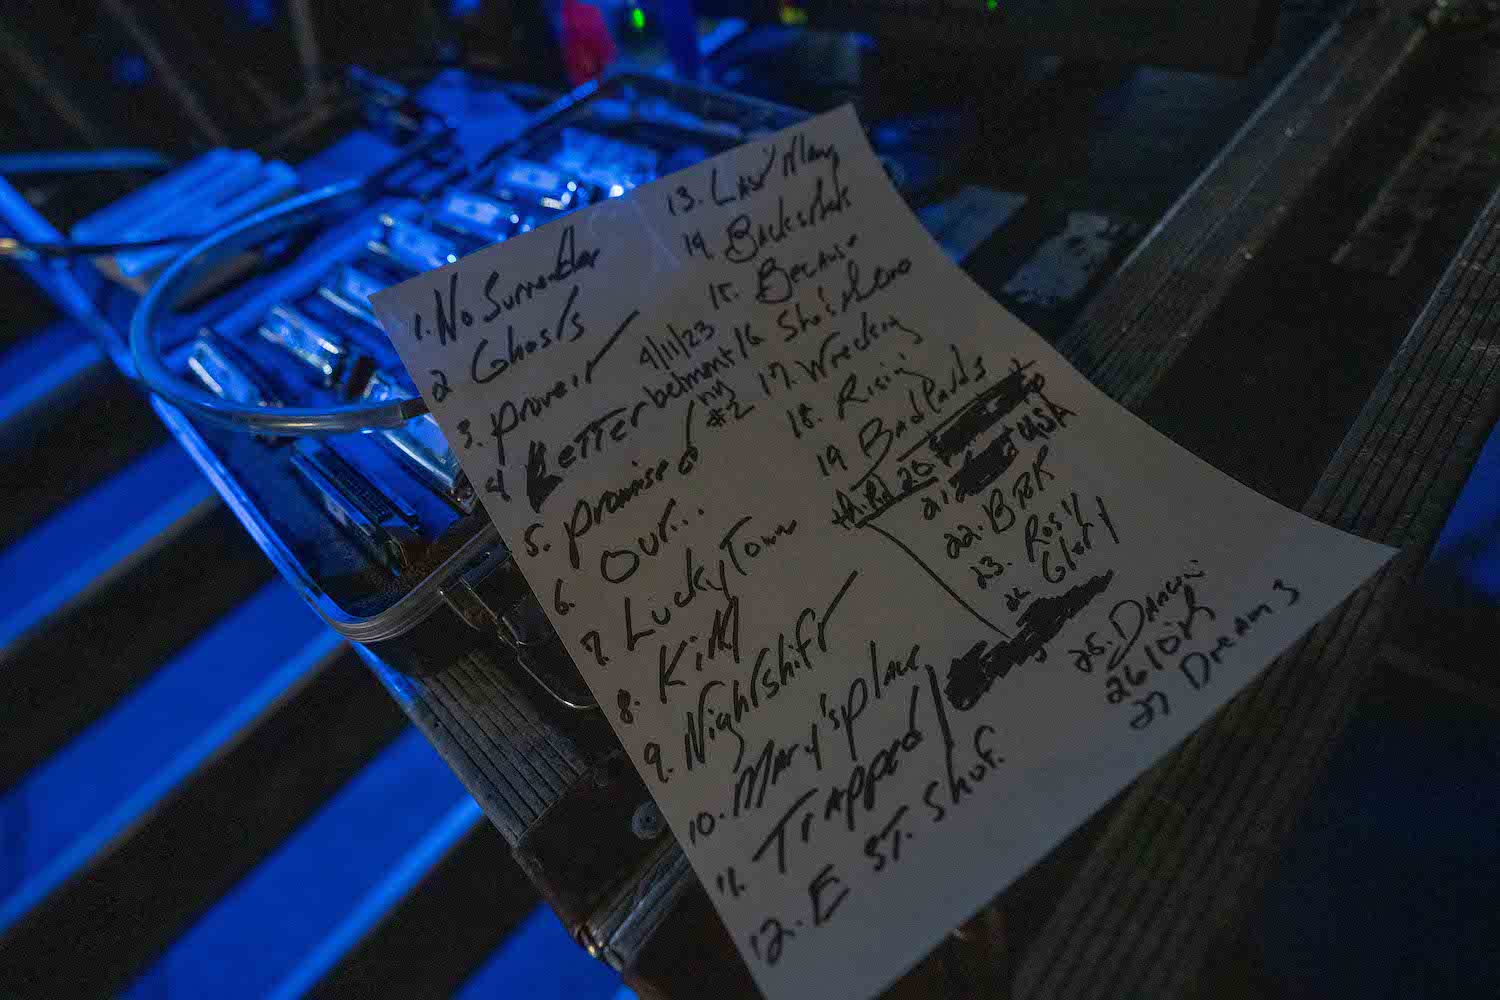 1. No Surrender
2 Ghosts
3. prove it
4/11/23
4 Letter
5. promise of
belmont
ny
#2
6. Our...
7. Lucky Town
8. Kitty
9. Nightshift
10. Mary's place
11. Trapped
12. E ST. Shuf.
13. Last Man
14. Backstreets
15. Because
16 She's the One
17. Wrecking
18. Rising
19 Badlands
20
21. USA
22. BTR
23. Rosy
24 Glory
25. Dancin
26 10th
27 Dream 3